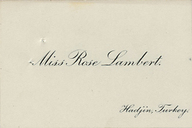 Miss Rose Lambert.
Hadjin, Turkey.